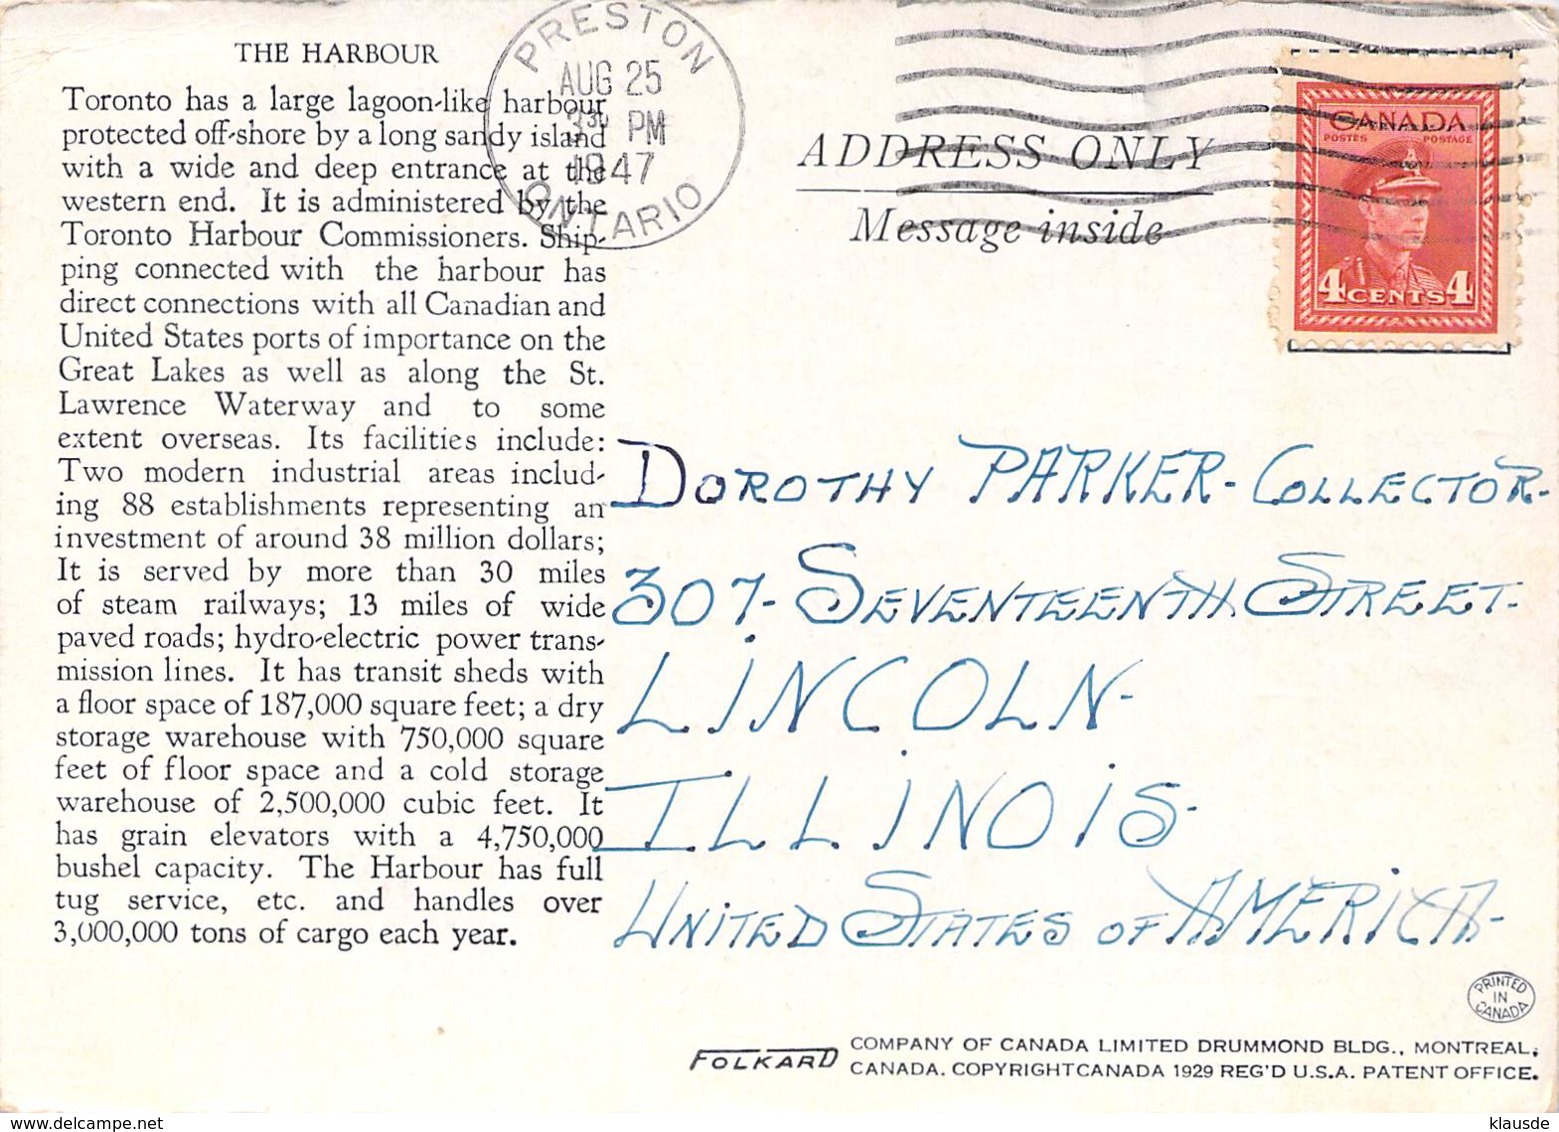 THE HARBOUR
Toronto has a large lagoon-like harbour
protected off-shore by a long sandy island
with a wide and deep entrance at the
western end. It is administered by the
Toronto Harbour Commissioners. Ship-
ping connected with the harbour has
direct connections with all Canadian and
United States ports of importance on the
Great Lakes as well as along the St.
Lawrence Waterway and to some
extent overseas. Its facilities include:
Two modern industrial areas includ-
ing 88 establishments representing an
investment of around 38 million dollars;
It is served by more than 30 miles
of steam railways; 13 miles of wide
paved roads; hydro-electric power trans-
mission lines. It has transit sheds with
a floor space of 187,000 square feet; a dry
storage warehouse with 750,000 square
feet of floor space and a cold storage
warehouse of 2,500,000 cubic feet. It
has grain elevators with a 4,750,000
bushel capacity. The Harbour has full
tug service, etc. and handles over
3,000,000 tons of cargo each year.
PRESTON
AUG 25
3 30 PM
1947
ONTARIO
ADDRESS ONLY
Message inside
CANADA
POSTES POSTAGE
4 CENTS 4
DOROTHY PARKER - COLLECTOR -
307 - SEVENTEENTH STREET -
LINCOLN -
ILLINOIS -
UNITED STATES OF AMERICA -
PRINTED
IN
CANADA
FOLKARD COMPANY OF CANADA LIMITED DRUMMOND BLDG., MONTREAL,
CANADA. COPYRIGHT CANADA 1929 REG'D U.S.A. PATENT OFFICE.
klausde